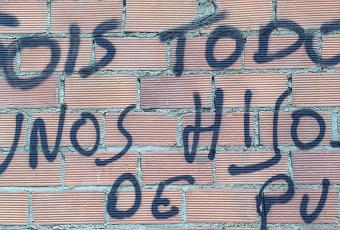 OIS TODO
UNOS HIJO
DE PU